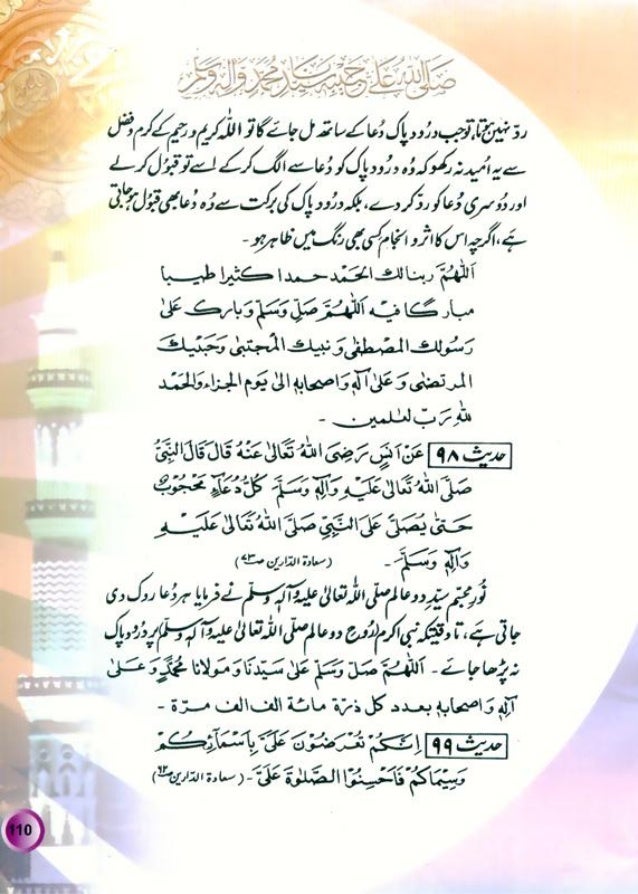 صَلَّى اللهُ عَلٰى حَبِيْبِهٖ سَيِّدِنَا مُحَمَّدٍ وَّاٰلِهٖ وَسَلَّمَ
ردّ نہیں ہوتا، تو جب درود پاک دُعا کے ساتھ مل جائے گا تو اللہ کریم و رحیم کے کرم و فضل
سے یہ اُمید نہ رکھو کہ وُہ درود پاک کو دُعا سے الگ کر کے اسے تو قبول کر لے
اور دُوسری دُعا کو ردّ کر دے، بلکہ درود پاک کی برکت سے وُہ دُعا بھی قبول ہو جاتی
ہے، اگرچہ اس کا اثر و انجام کسی بھی رنگ میں ظاہر ہو ۔
اَللّٰهُمَّ ربنا لك الحَمْد حمدا كثيرا طيبا
مباركا فيه اَللّٰهُمَّ صَلِّ وَسَلِّمْ وَبارك عَلٰى
رَسولك المصطفٰى و نبيك المجتبٰى وَحَبيبك
المرتضٰى وَ عَلٰى آلهٖ وَاصحابهٖ الٰى يوم الجزاء وَالحَمْد
لله رَبّ لعٰلمين ۔
حدیث ۹۸ عَنْ اَنَسٍ رَضِیَ اللهُ تَعَالٰى عَنْهُ قَالَ قَالَ النَّبِیُّ
صَلَّی اللهُ تَعَالٰى عَلَيْهِ وَاٰلِهٖ وَسَلَّمَ كُلُّ دُعَاءٍ مَحْجُوْبٌ
حَتّٰى يُصَلّٰى عَلَى النَّبِیِّ صَلَّی اللهُ تَعَالٰى عَلَيْهِ
وَاٰلِهٖ وَسَلَّمَ ۔ (سعادة الدّارین ص۷۳)
نُورِ مجسّم سیّدِ دو عالم صلّی اللہ تعالٰی علیہ وآلہٖ وسلّم نے فرمایا ہر دُعا روک دی
جاتی ہے، تا وقتیکہ نبی اکرم (رُوحِ دو عالم صلّی اللہ تعالٰی علیہ وآلہٖ وسلّم) پر درُود پاک
نہ پڑھا جائے ۔ اَللّٰهُمَّ صَلّ وَسَلّم عَلٰى سَيّدنَا وَمَولانا مُحَمَّدٍ وَّ عَلٰى
آلهٖ وَاصحابهٖ بعدد كل ذرّة مائة الف الف مرّة ۔
حدیث ۹۹ اِنَّكُمْ تُعْرَضُوْنَ عَلَیَّ بِاَسْمَآئِكُمْ
وَسِيْمَاكُمْ فَاَحْسِنُوا الصَّلٰوةَ عَلَیَّ ۔ (سعادة الدّارین ص۶۲)
110